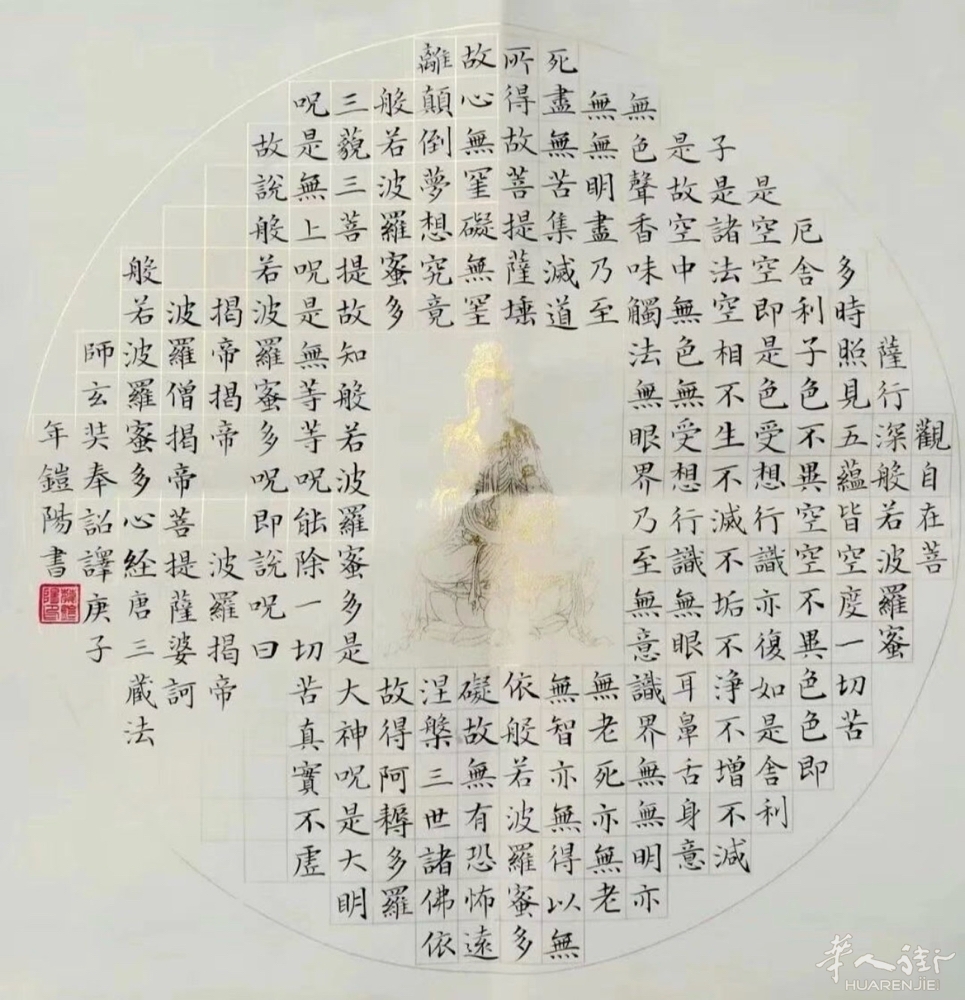 觀自在菩
薩行深般若波羅蜜
多時照見五蘊皆空度一切苦
厄舍利子色不異空空不異色色即
是空空即是色受想行識亦復如是舍利
子是諸法空相不生不滅不垢不淨不增不減
是故空中無色無受想行識無眼耳鼻舌身意
無色聲香味觸法無眼界乃至無意識界無無明亦
無無明盡乃至無老死亦無老
死盡無苦集滅道無智亦無得以無
所得故菩提薩埵依般若波羅蜜多
故心無罣礙無罣礙故無有恐怖遠
離顛倒夢想究竟涅槃三世諸佛依
般若波羅蜜多故得阿耨多羅
三藐三菩提故知般若波羅蜜多是大神呪是大明
呪是無上呪是無等等呪能除一切苦真實不虛
故說般若波羅蜜多呪即說呪曰
揭帝揭帝波羅揭帝
波羅僧揭帝菩提薩婆訶
般若波羅蜜多心経唐三藏法
師玄奘奉詔譯庚子
年鎧陽書
華人街
HUARENJIE